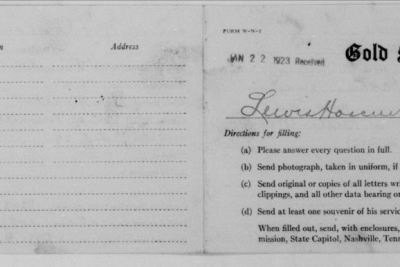 n Address
FORM W-W-1
JAN 22 1923 Received
Gold
Lewis
Directions for filling:
(a) Please answer every question in full.
(b) Send photograph, taken in uniform, if
(c) Send original or copies of all letters wri
clippings, and all other data bearing o
(d) Send at least one souvenir of his servic
When filled out, send, with enclosures,
mission, State Capitol, Nashville, Tenn